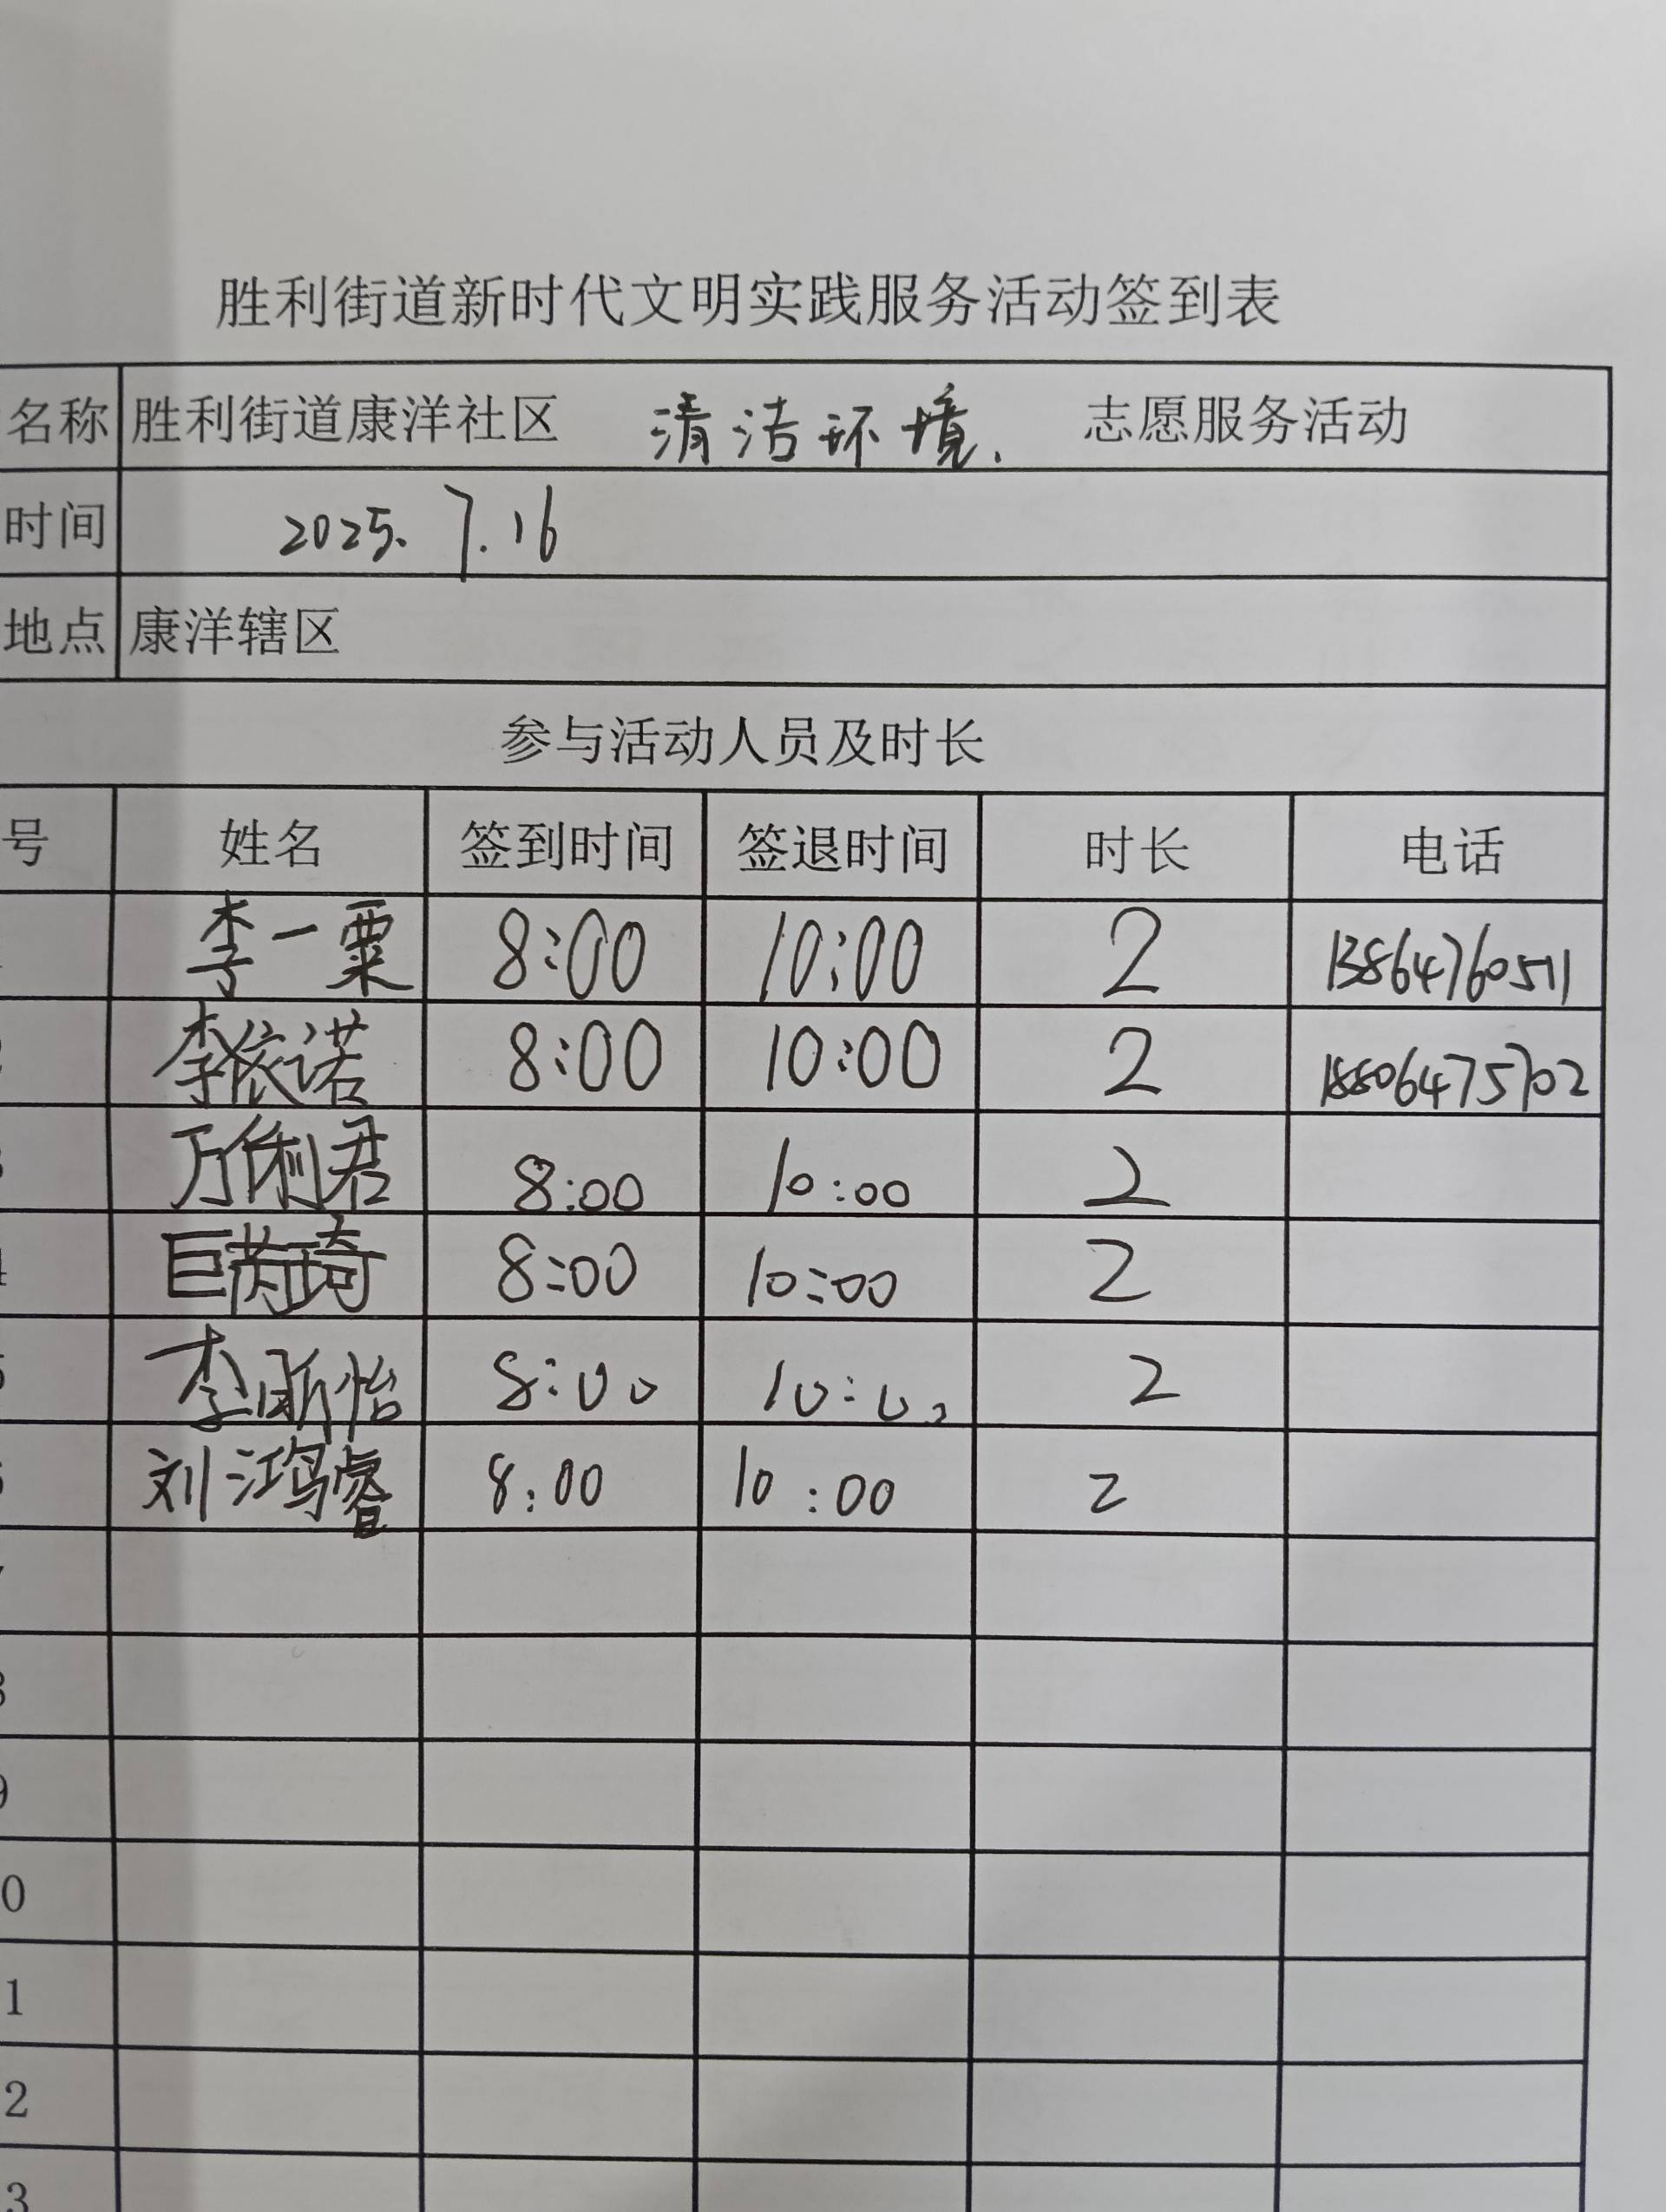 胜利街道新时代文明实践服务活动签到表
名称 胜利街道康洋社区 清洁环境. 志愿服务活动
时间 2025. 7. 16
地点 康洋辖区
参与活动人员及时长
号 姓名 签到时间 签退时间 时长 电话
李一粟 8:00 10:00 2 13864760511
李依诺 8:00 10:00 2 18806475702
万俐君 8:00 10:00 2
巨芮琦 8:00 10:00 2
李昕怡 8:00 10:00 2
刘鸿睿 8:00 10:00 2
8
9
0
1
2
3